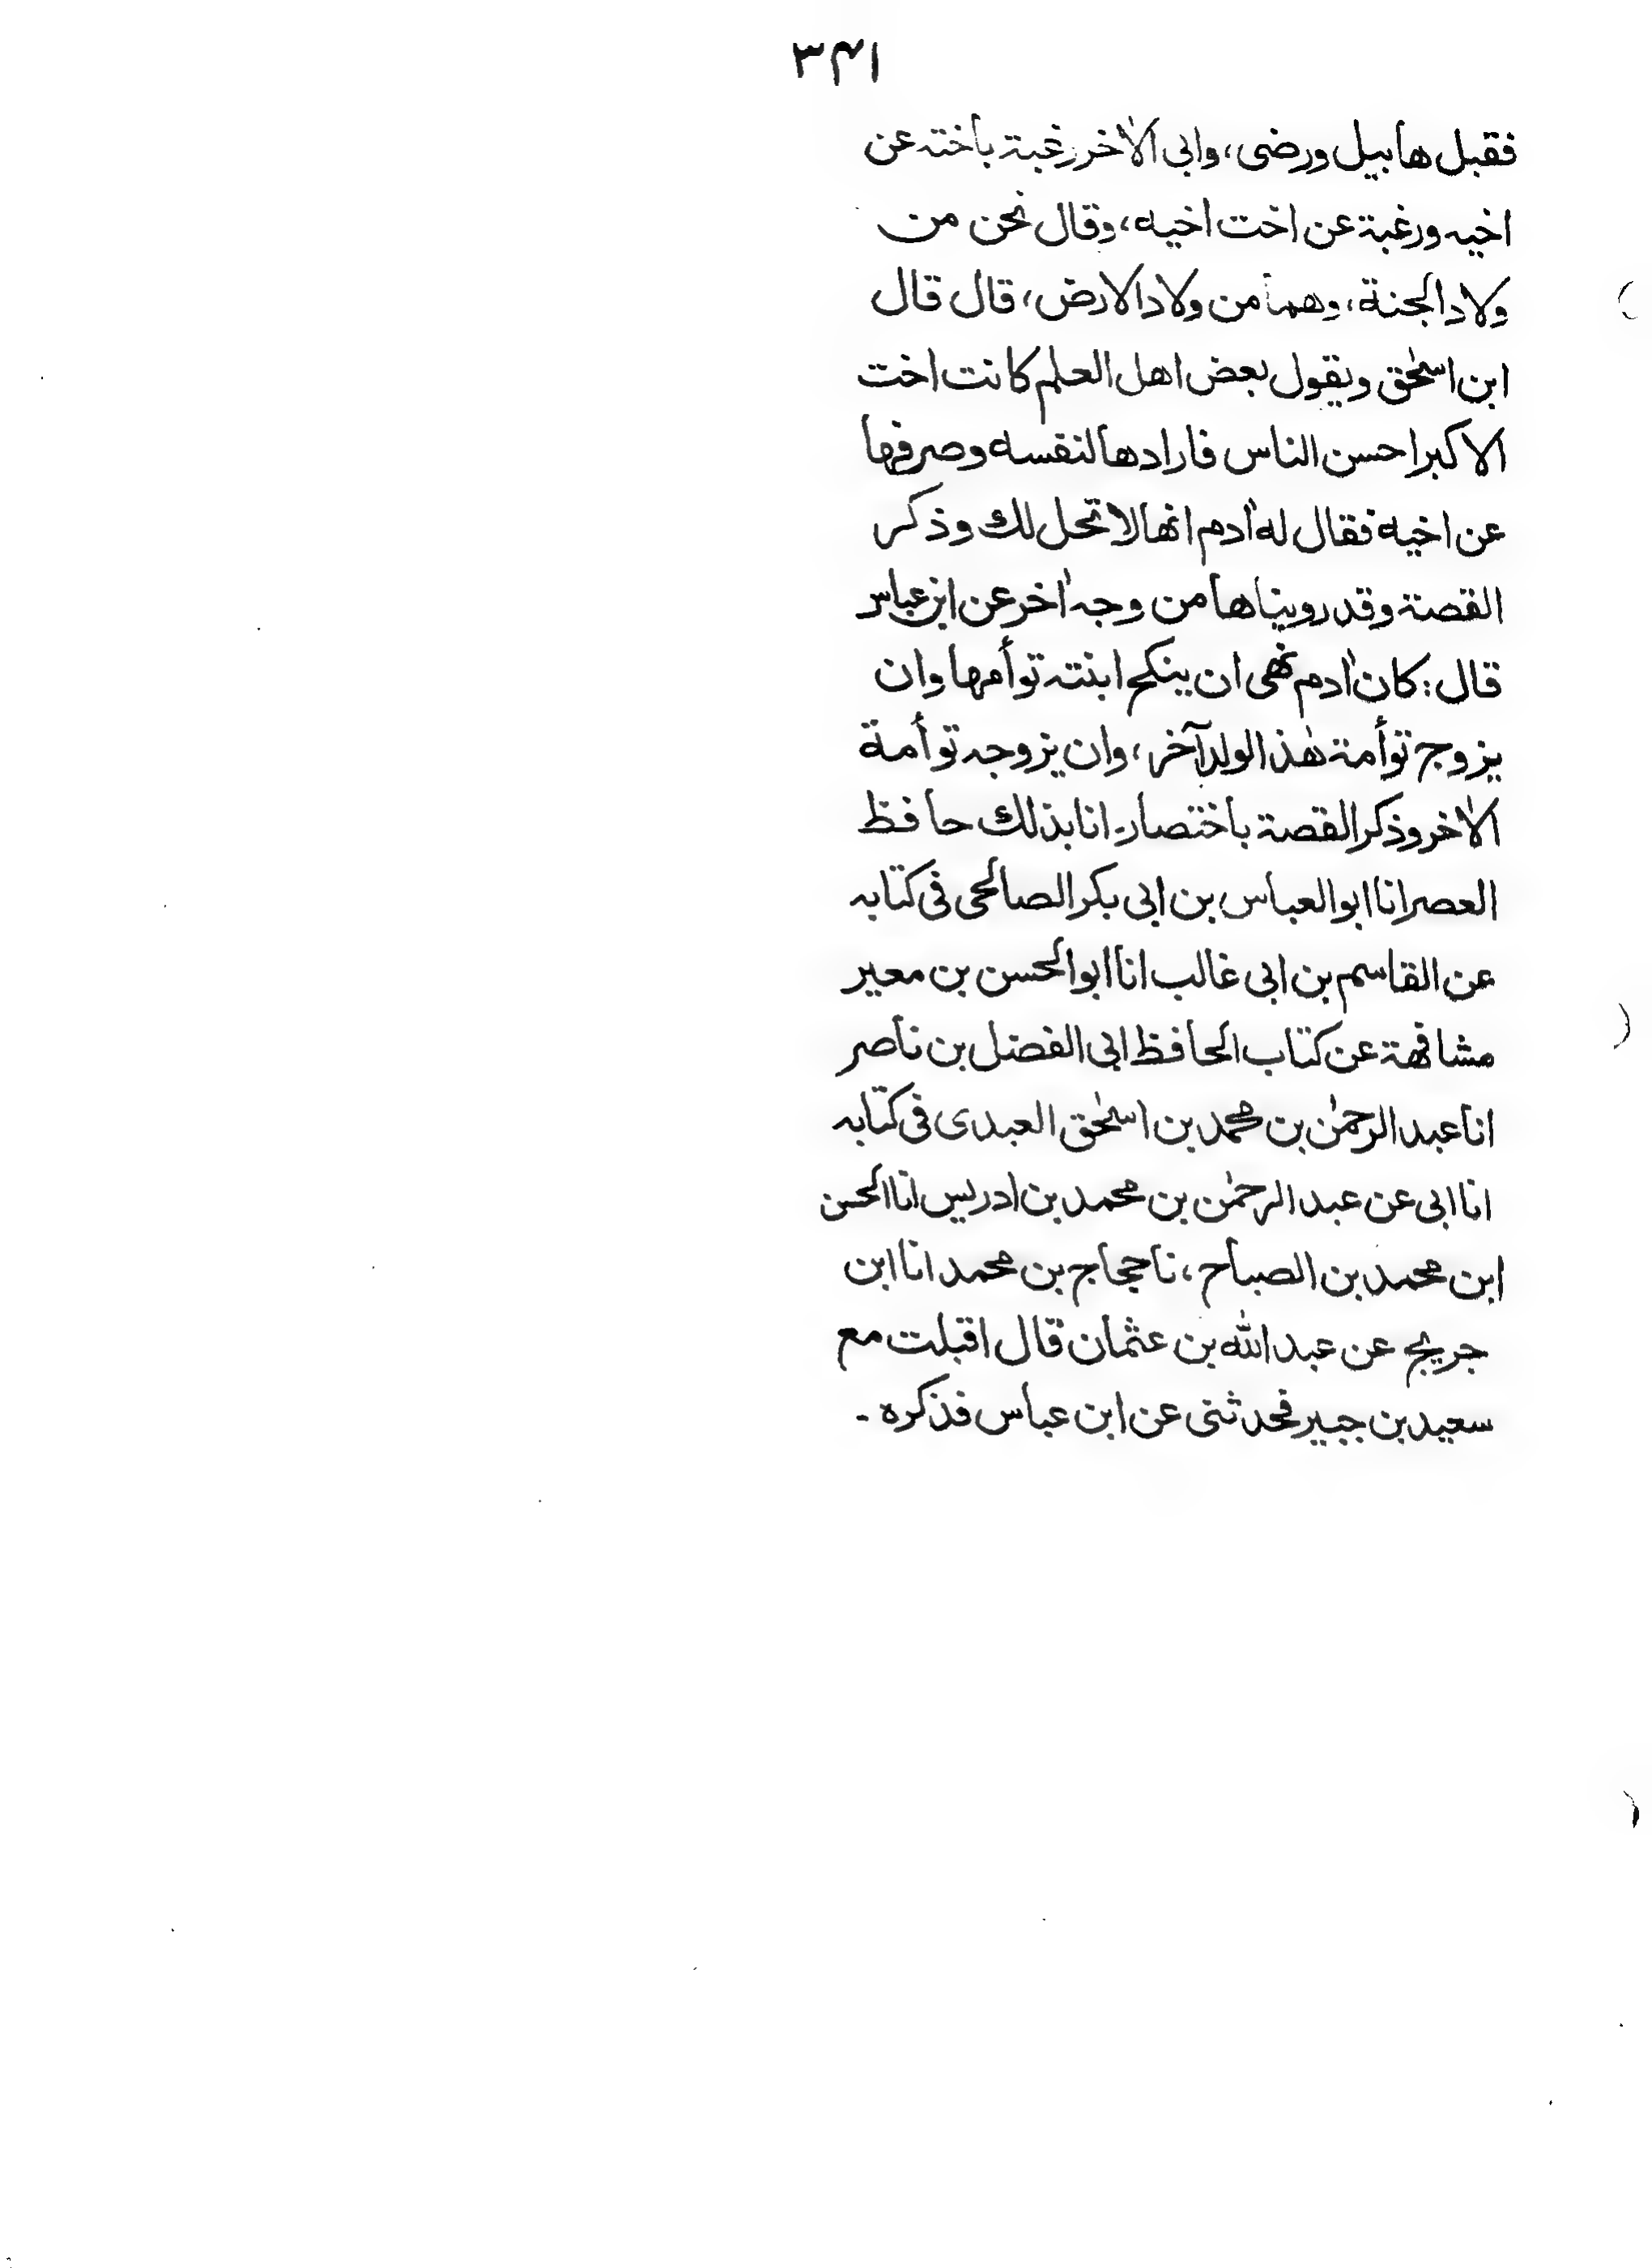 ۳۴۱
فقبل هابيل ورضى، وابى الاٰخر رغبة باخته عن
اخيه ورغبة عن اخت اخيه، وقال نحن من
ولاد الجنة، وهما من ولاد الارض، قال قال
ابن اسحٰق ويقول بعض اهل العلم كانت اخت
الاكبر احسن الناس فارادها لنفسه وصرفها
عن اخيه فقال له اٰدم انها لا تحل لك وذكر
القصة وقد رويناها من وجه اٰخر عن ابن عباس
قال: كان اٰدم نهى ان ينكح ابنته توأمها وان
يزوج توأمة هٰذا الولد آخر، وان يزوجه توأمة
الاٰخر وذكر القصة باختصار۔ انا بذلك حافظ
العصر انا ابو العباس بن ابى بكر الصالحى فى كتابه
عن القاسم بن ابى غالب انا ابو الحسن بن معير
مشافهة عن كتاب الحافظ ابى الفضل بن ناصر
انا عبد الرحمٰن بن محمد بن اسحٰق العبدى فى كتابه
انا ابى عن عبد الرحمٰن بن محمد بن ادريس انا الحسن
ابن محمد بن الصباح، نا حجاج بن محمد انا ابن
جريج عن عبد الله بن عثمان قال اقبلت مع
سعيد بن جبير فحدثنى عن ابن عباس فذكره ۔